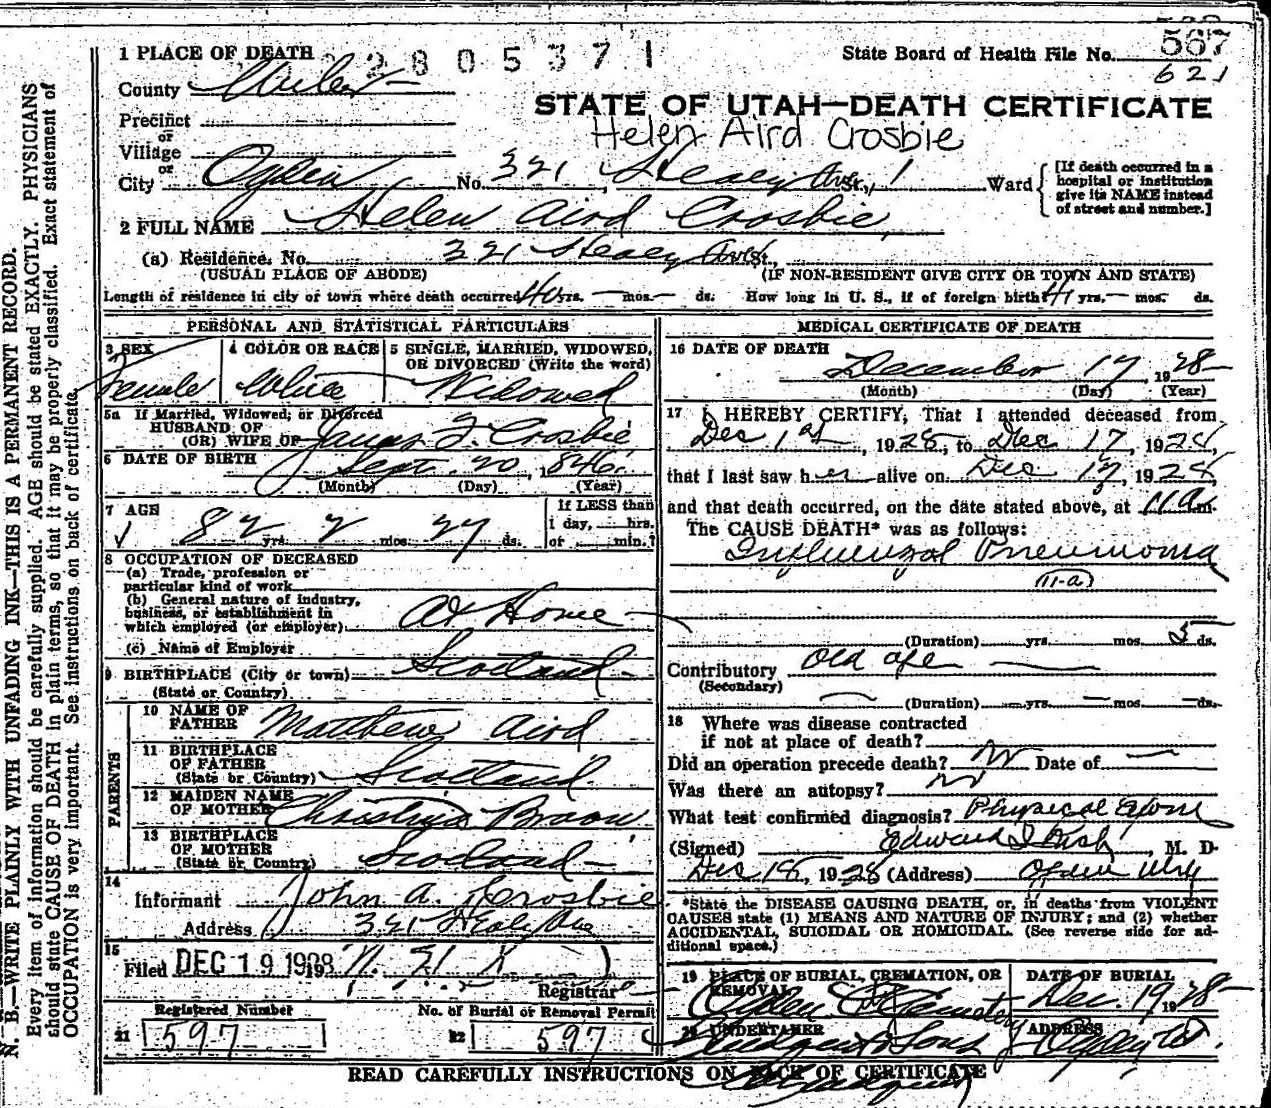 567
1 PLACE OF DEATH 2 8 0 5 3 7 1 State Board of Health File No.
621
County Weber
STATE OF UTAH—DEATH CERTIFICATE
Precinct
or
Helen Aird Crosbie
Village
or
City Ogden No. 321 Healy Ave St., 1 Ward
[If death occurred in a hospital or institution give its NAME instead of street and number.]
2 FULL NAME Helen Aird Crosbie,
(a) Residence. No. 321 Healy Ave St.,
(USUAL PLACE OF ABODE) (IF NON-RESIDENT GIVE CITY OR TOWN AND STATE)
Length of residence in city or town where death occurred 40 yrs. — mos. — ds. How long in U. S., if of foreign birth? 41 yrs. — mos. ds.
PERSONAL AND STATISTICAL PARTICULARS
3 SEX
Female
4 COLOR OR RACE
White
5 SINGLE, MARRIED, WIDOWED,
OR DIVORCED (Write the word)
Widowed
5a If Married, Widowed, or Divorced
HUSBAND OF
(OR) WIFE OF James F. Crosbie
6 DATE OF BIRTH
Sept. 20, 1846.
(Month) (Day) (Year)
7 AGE
82 yrs. 2 mos. 27 ds.
If LESS than
1 day, hrs.
or min.?
8 OCCUPATION OF DECEASED
(a) Trade, profession or
particular kind of work
(b) General nature of industry,
business, or establishment in
which employed (or employer) At Home
(c) Name of Employer
9 BIRTHPLACE (City or town) Scotland
(State or Country)
PARENTS
10 NAME OF
FATHER Matthew Aird
11 BIRTHPLACE
OF FATHER
(State or Country) Scotland
12 MAIDEN NAME
OF MOTHER Christina Brown
13 BIRTHPLACE
OF MOTHER
(State or Country) Scotland
14
Informant John A. Crosbie
Address 321 Healy Ave
15
Filed DEC 19 1928
Registrar
Registered Number No. of Burial or Removal Permit
21 597 22 597
MEDICAL CERTIFICATE OF DEATH
16 DATE OF DEATH
December 17, 1928
(Month) (Day) (Year)
17 I HEREBY CERTIFY, That I attended deceased from
Dec 1st, 1928, to Dec 17, 1928,
that I last saw her alive on Dec 17, 1928,
and that death occurred, on the date stated above, at 11 a m.
The CAUSE DEATH* was as follows:
Influenzal Pneumonia
11-a
(Duration) yrs. mos. 5 ds.
Contributory Old age
(Secondary)
(Duration) yrs. — mos. — ds.
18 Where was disease contracted
if not at place of death?
Did an operation precede death? No Date of —
Was there an autopsy? No
What test confirmed diagnosis? Physical Exam
(Signed) Edward I. Rich, M. D.
Dec 18, 1928 (Address) Ogden Utah
*State the DISEASE CAUSING DEATH, or, in deaths from VIOLENT
CAUSES state (1) MEANS AND NATURE OF INJURY; and (2) whether
ACCIDENTAL, SUICIDAL OR HOMICIDAL. (See reverse side for ad-
ditional space.)
19 PLACE OF BURIAL, CREMATION, OR
REMOVAL
Ogden City Cemetery
DATE OF BURIAL
Dec. 19 1928
20 UNDERTAKER
& Sons
ADDRESS
Ogden Ut.
READ CAREFULLY INSTRUCTIONS ON BACK OF CERTIFICATE
N. B.—WRITE PLAINLY WITH UNFADING INK—THIS IS A PERMANENT RECORD.
Every item of information should be carefully supplied. AGE should be stated EXACTLY. PHYSICIANS
should state CAUSE OF DEATH in plain terms, so that it may be properly classified. Exact statement of
OCCUPATION is very important. See instructions on back of certificate.